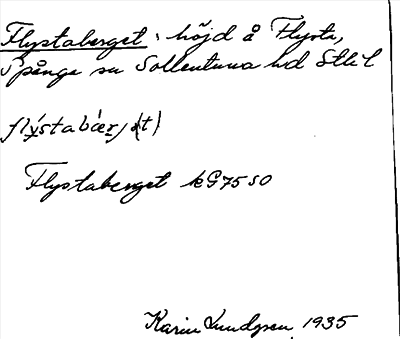 Flystaberget : höjd å Flysta,
Spånga sn Sollentuna hd Sthl
Flystaberget kG75SO
Karin Lundgren 1935